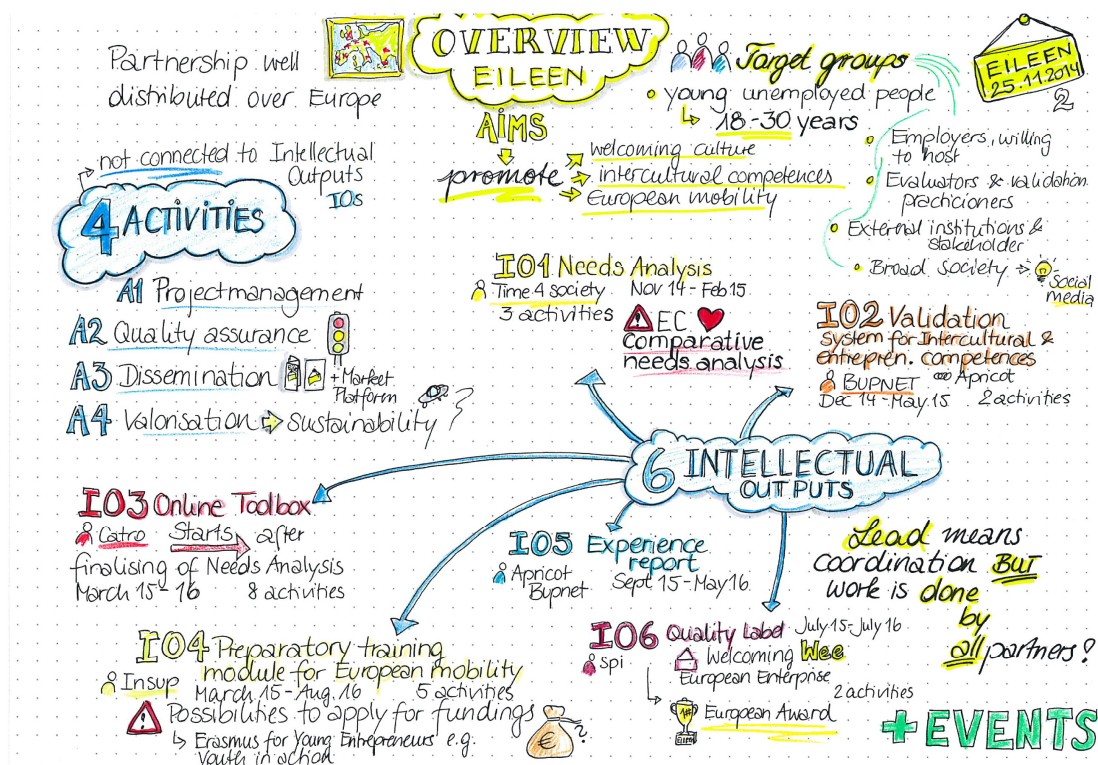 Partnership well
distributed over Europe
OVERVIEW
EILEEN
AIMS
promote
welcoming culture
intercultural competences
European mobility
Target groups
young unemployed people
18-30 years
Employers, willing
to host
Evaluators & validation
practicioners
External institutions &
stakeholder
Broad Society
Social
media
EILEEN
25.11.2014
2
not connected to Intellectual
Outputs
IOs
4 ACTIVITIES
A1 Projectmanagement
A2 Quality assurance
A3 Dissemination
+ Market
Platform
A4 Valorisation Sustainability ?
IO1 Needs Analysis
Time 4 society Nov 14 - Feb 15
3 activities
EC
Comparative
needs analysis
IO2 Validation
System for Intercultural &
entrepren. competences
BUPNET Apricot
Dec 14 - May 15 2 activities
6 INTELLECTUAL
OUTPUTS
IO3 Online Toolbox
Catro Starts after
finalising of Needs Analysis
March 15 - 16 8 activities
IO5 Experience
report
Apricot
Bupnet
Sept 15 - May 16
Lead means
coordination BUT
work is done
by
all partners!
IO4 Preparatory training
module for European mobility
Insup
March 15 - Aug. 16 5 activities
Possibilities to apply for fundings
Erasmus for Young Entrepreneurs e.g.
Youth in action
€ ?
IO6 Quality Label July 15 - July 16
spi
Welcoming Wee
European Enterprise
2 activities
European Award
+ EVENTS